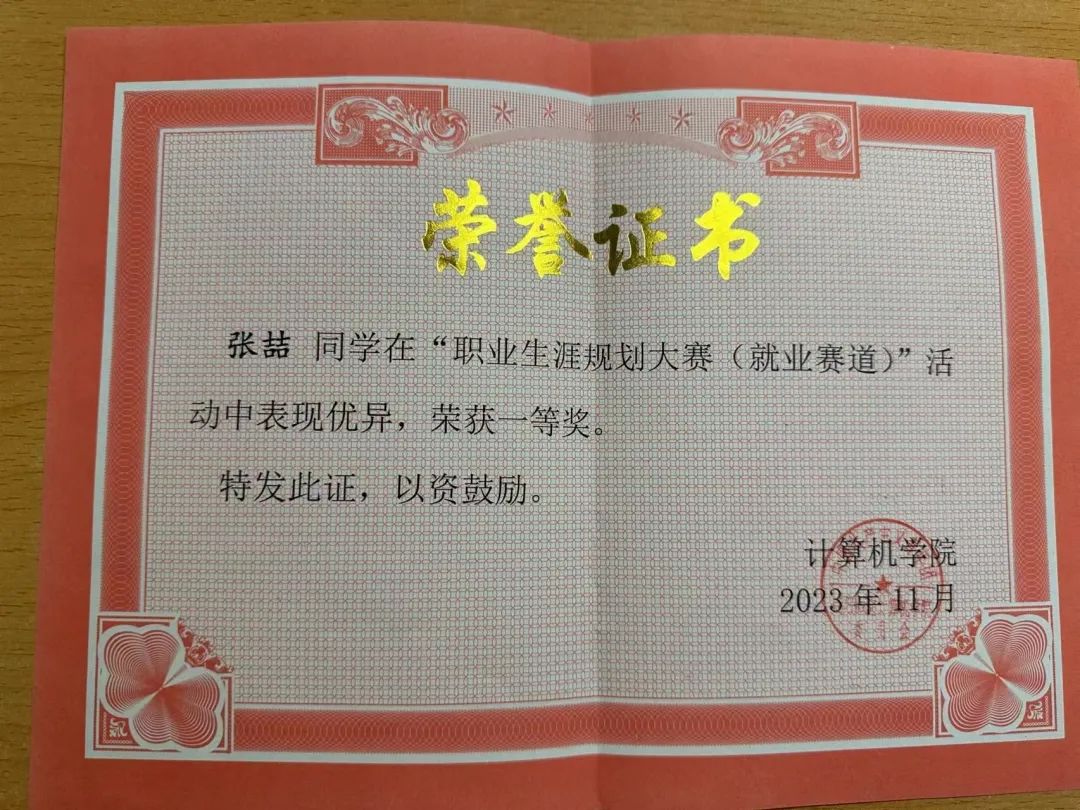 荣誉证书
张喆 同学在“职业生涯规划大赛（就业赛道）”活
动中表现优异，荣获一等奖。
特发此证，以资鼓励。
计算机学院
2023年11月
委员会